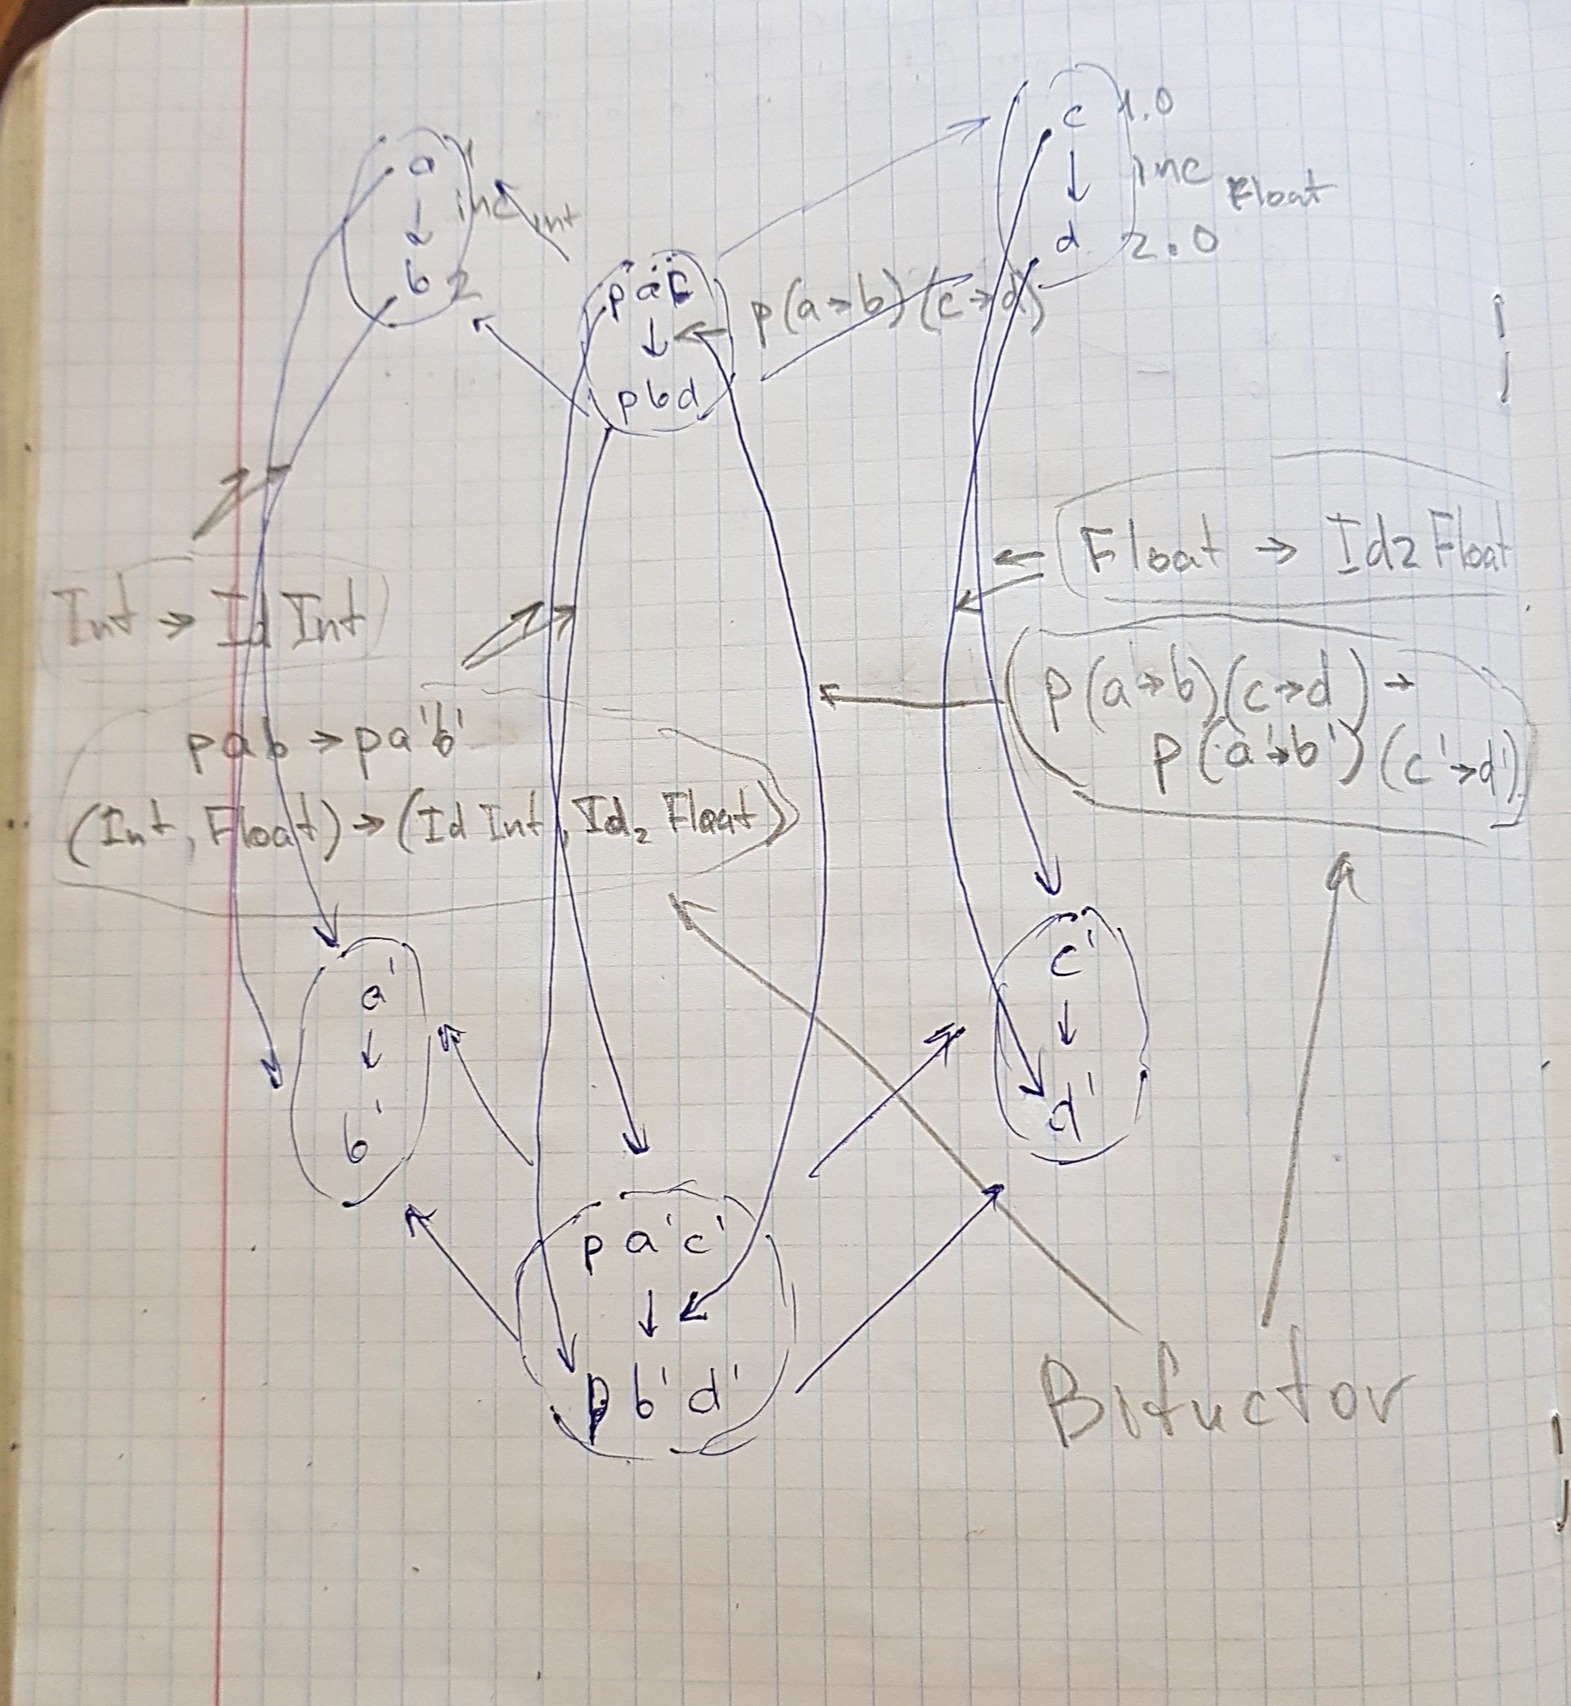 a 1
inc Int
b 2
c 1.0
inc Float
d 2.0
p a c
p b d
p(a→b)(c→d)
Int → Id Int
Float → Id2 Float
p a b → p a' b'
(Int, Float) → (Id Int, Id₂ Float)
p(a→b)(c→d) →
p(a'→b')(c'→d')
a'
b'
c'
d'
p a' c'
p b' d'
Bifuctor